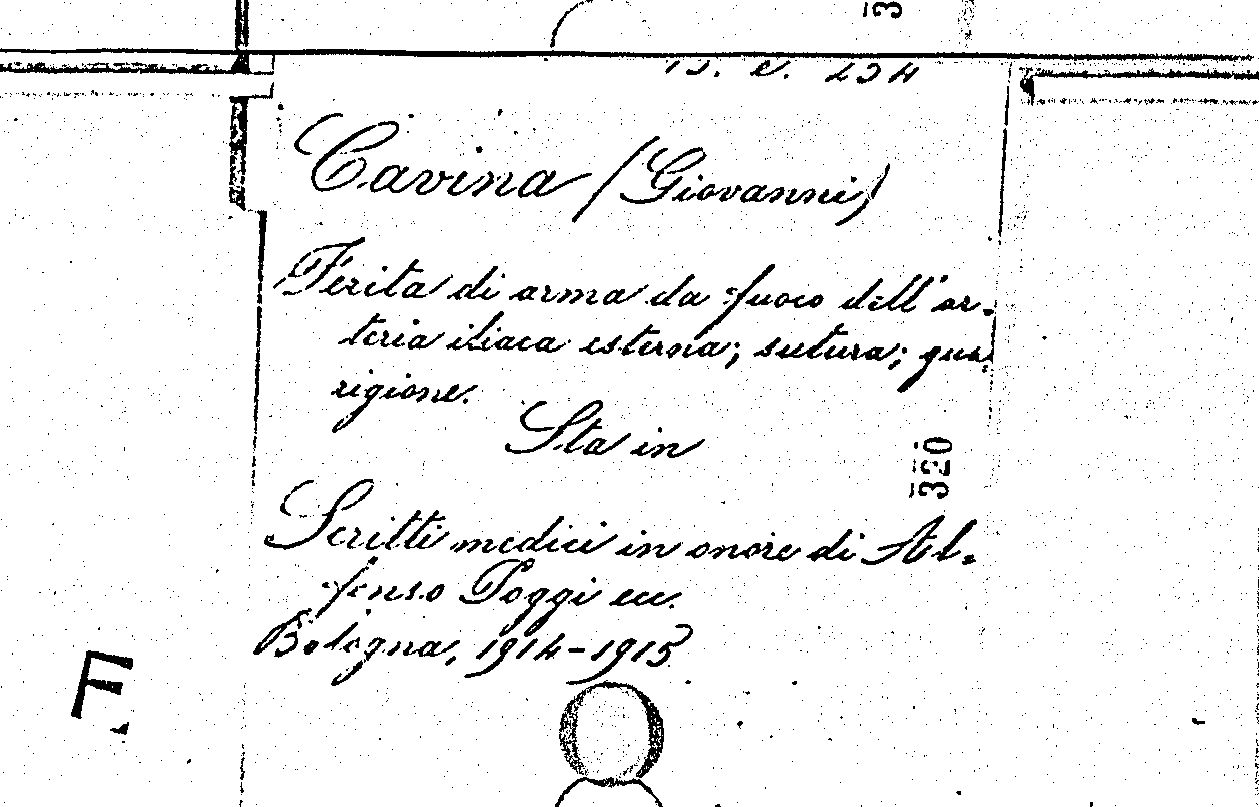 Cavina (Giovanni)
Ferita di arma da fuoco dell'ar-
teria iliaca esterna; sutura; gua-
rigione.
Sta in
320
Scritti medici in onore di Al-
fonso Poggi ecc.
Bologna, 1914-1915
F.